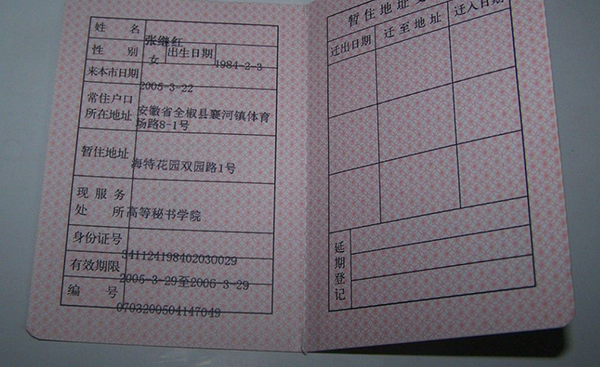 姓名 张继红
性别 女 出生日期 1984-2-3
来本市日期 2005-3-22
常住户口 安徽省全椒县襄河镇体育
所在地址 场路8-1号
暂住地址 海特花园双园路1号
现服务
处所 高等秘书学院
身份证号 341124198402030029
有效期限 2005-3-29至2006-3-29
编号 0703200504147049
暂住地址变
迁出日期 迁至地址 迁入日期
延期登记